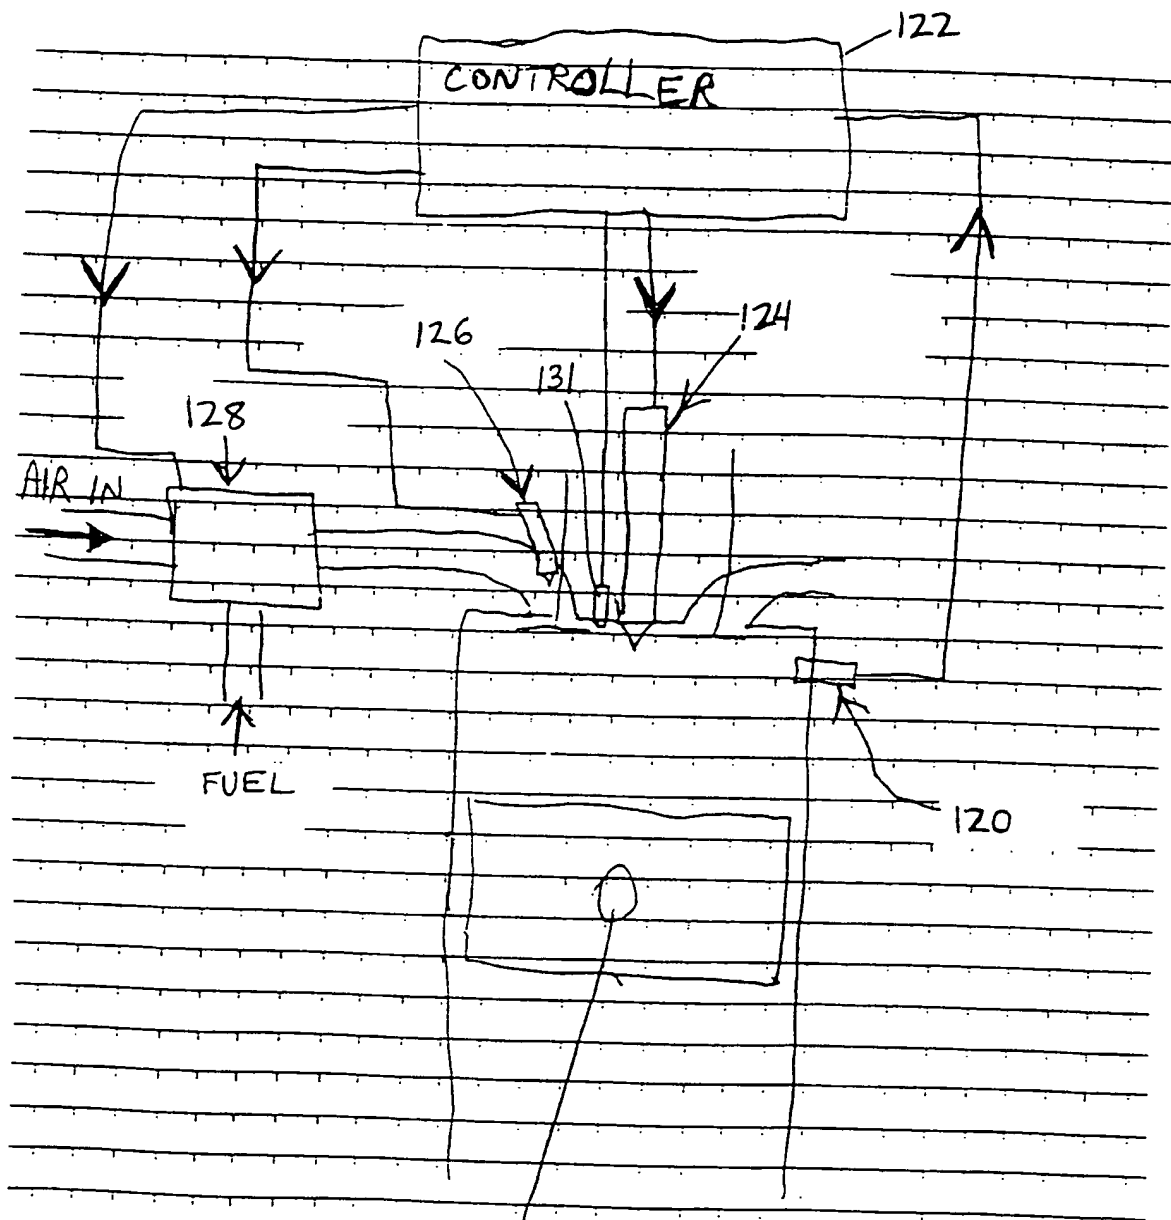 122
CONTROLLER
126
124
131
128
AIR IN
FUEL
120